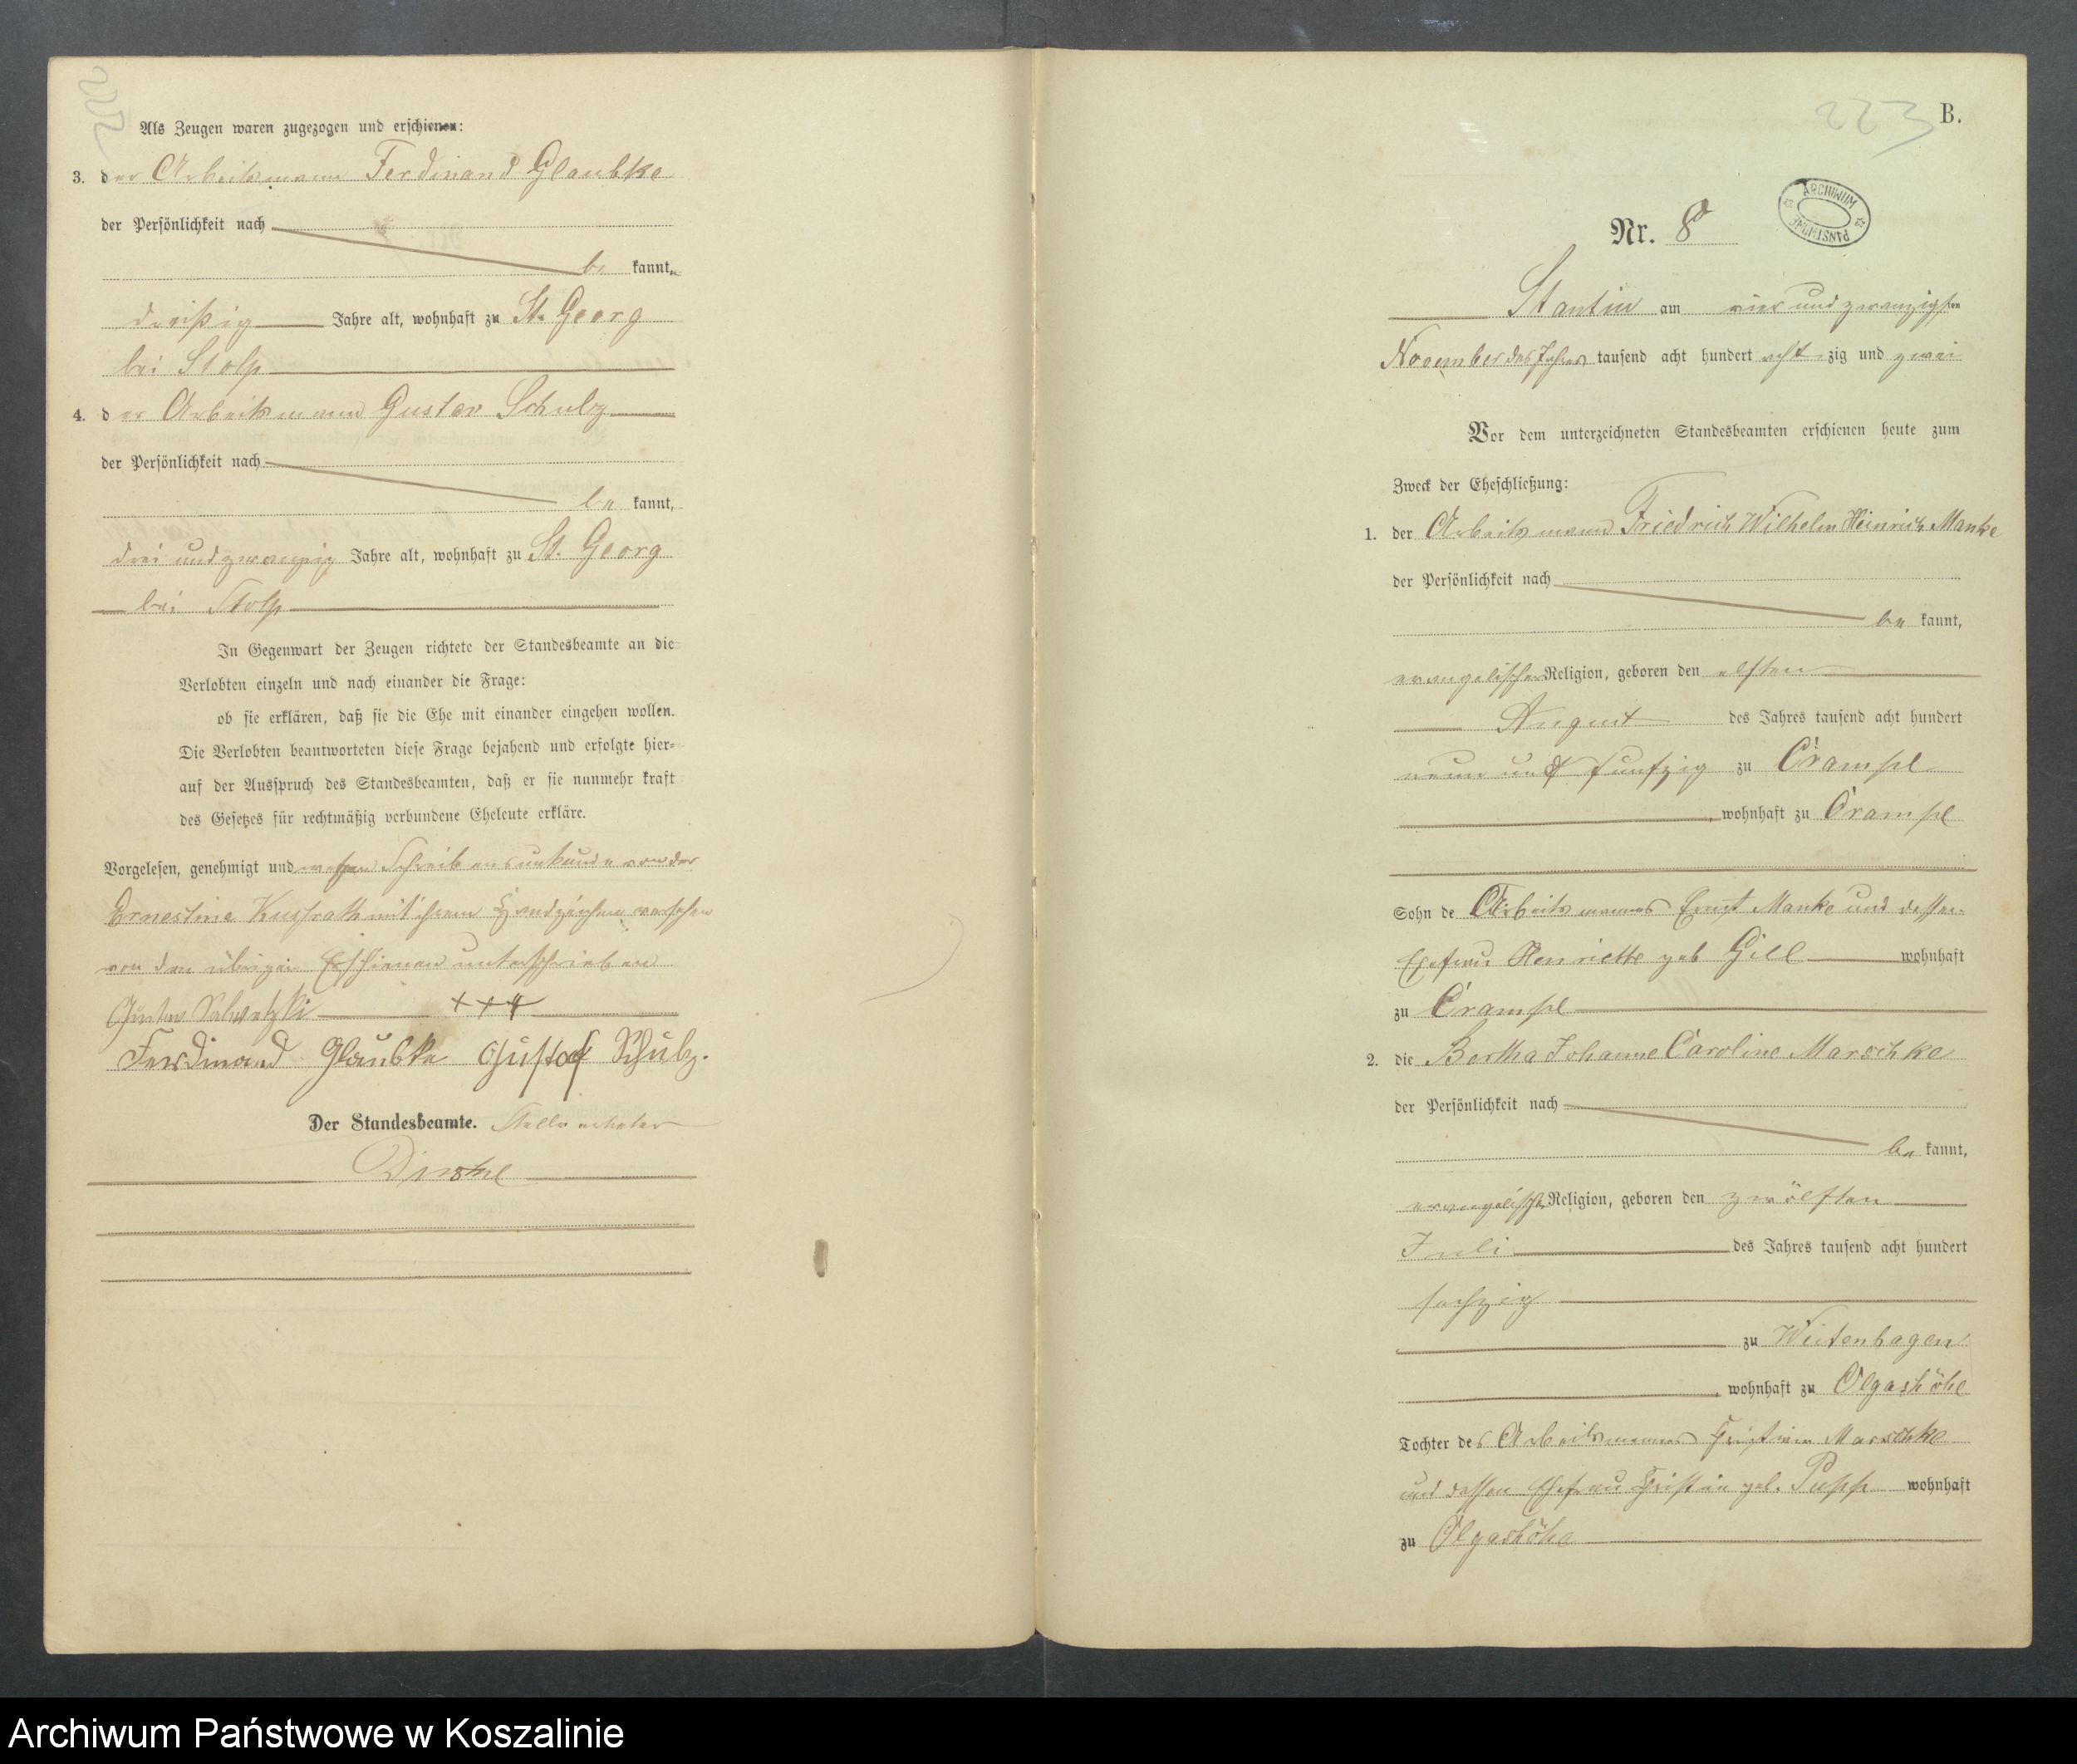 222
Als Zeugen waren zugezogen und erschienen:
3. der Arbeitsmann Ferdinand Glaubke
der Persönlichkeit nach
be kannt,
dreißig Jahre alt, wohnhaft zu St. Georg
bei Stolp
4. der Arbeitsmann Gustav Schulz
der Persönlichkeit nach
be kannt,
drei und zwanzig Jahre alt, wohnhaft zu St. Georg
bei Stolp
In Gegenwart der Zeugen richtete der Standesbeamte an die
Verlobten einzeln und nach einander die Frage:
ob sie erklären, daß sie die Ehe mit einander eingehen wollen.
Die Verlobten beantworteten diese Frage bejahend und erfolgte hier-
auf der Ausspruch des Standesbeamten, daß er sie nunmehr kraft
des Gesetzes für rechtmäßig verbundene Eheleute erkläre.
Vorgelesen, genehmigt und wegen Schreibensunkunde von der
Ernestine mit ihrem Handzeichen versehen
von den übrigen Erschienen unterschrieben
Gustav +++
Ferdinand Glaubke Gustaf Schulz.
Der Standesbeamte. Stellvertreter
223 B.
ARCHIWUM PAŃSTWOWE
Nr. 8
Stantin am vier und zwanzigsten
November des Jahres tausend acht hundert acht zig und zwei
Vor dem unterzeichneten Standesbeamten erschienen heute zum
Zweck der Eheschließung:
1. der Arbeitsmann Friedrich Wilhelm Heinrich Manke
der Persönlichkeit nach
be kannt,
evangelischer Religion, geboren den elften
August des Jahres tausend acht hundert
neun und funfzig zu Crampe
, wohnhaft zu Crampe
Sohn de Arbeitsmannes Ernst Manke und dessen
Ehefrau Henriette geb Gill wohnhaft
zu Crampe
2. die Bertha Johanne Caroline Marschke
der Persönlichkeit nach
be kannt,
evangelischer Religion, geboren den zwölften
Juli des Jahres tausend acht hundert
sechzig
zu Wietenhagen
, wohnhaft zu Olgashöhe
Tochter des Arbeitsmannes Marschke
und dessen Ehefrau geb. wohnhaft
zu Olgashöhe
Archiwum Państwowe w Koszalinie